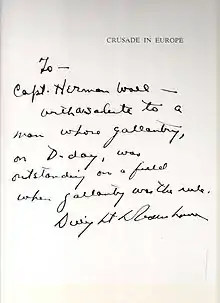 CRUSADE IN EUROPE
To —
Capt. Herman Wall —
with a salute to a
man whose gallantry,
on D-day, was
outstanding on a field
when gallantry was the rule.
Dwight D Eisenhower